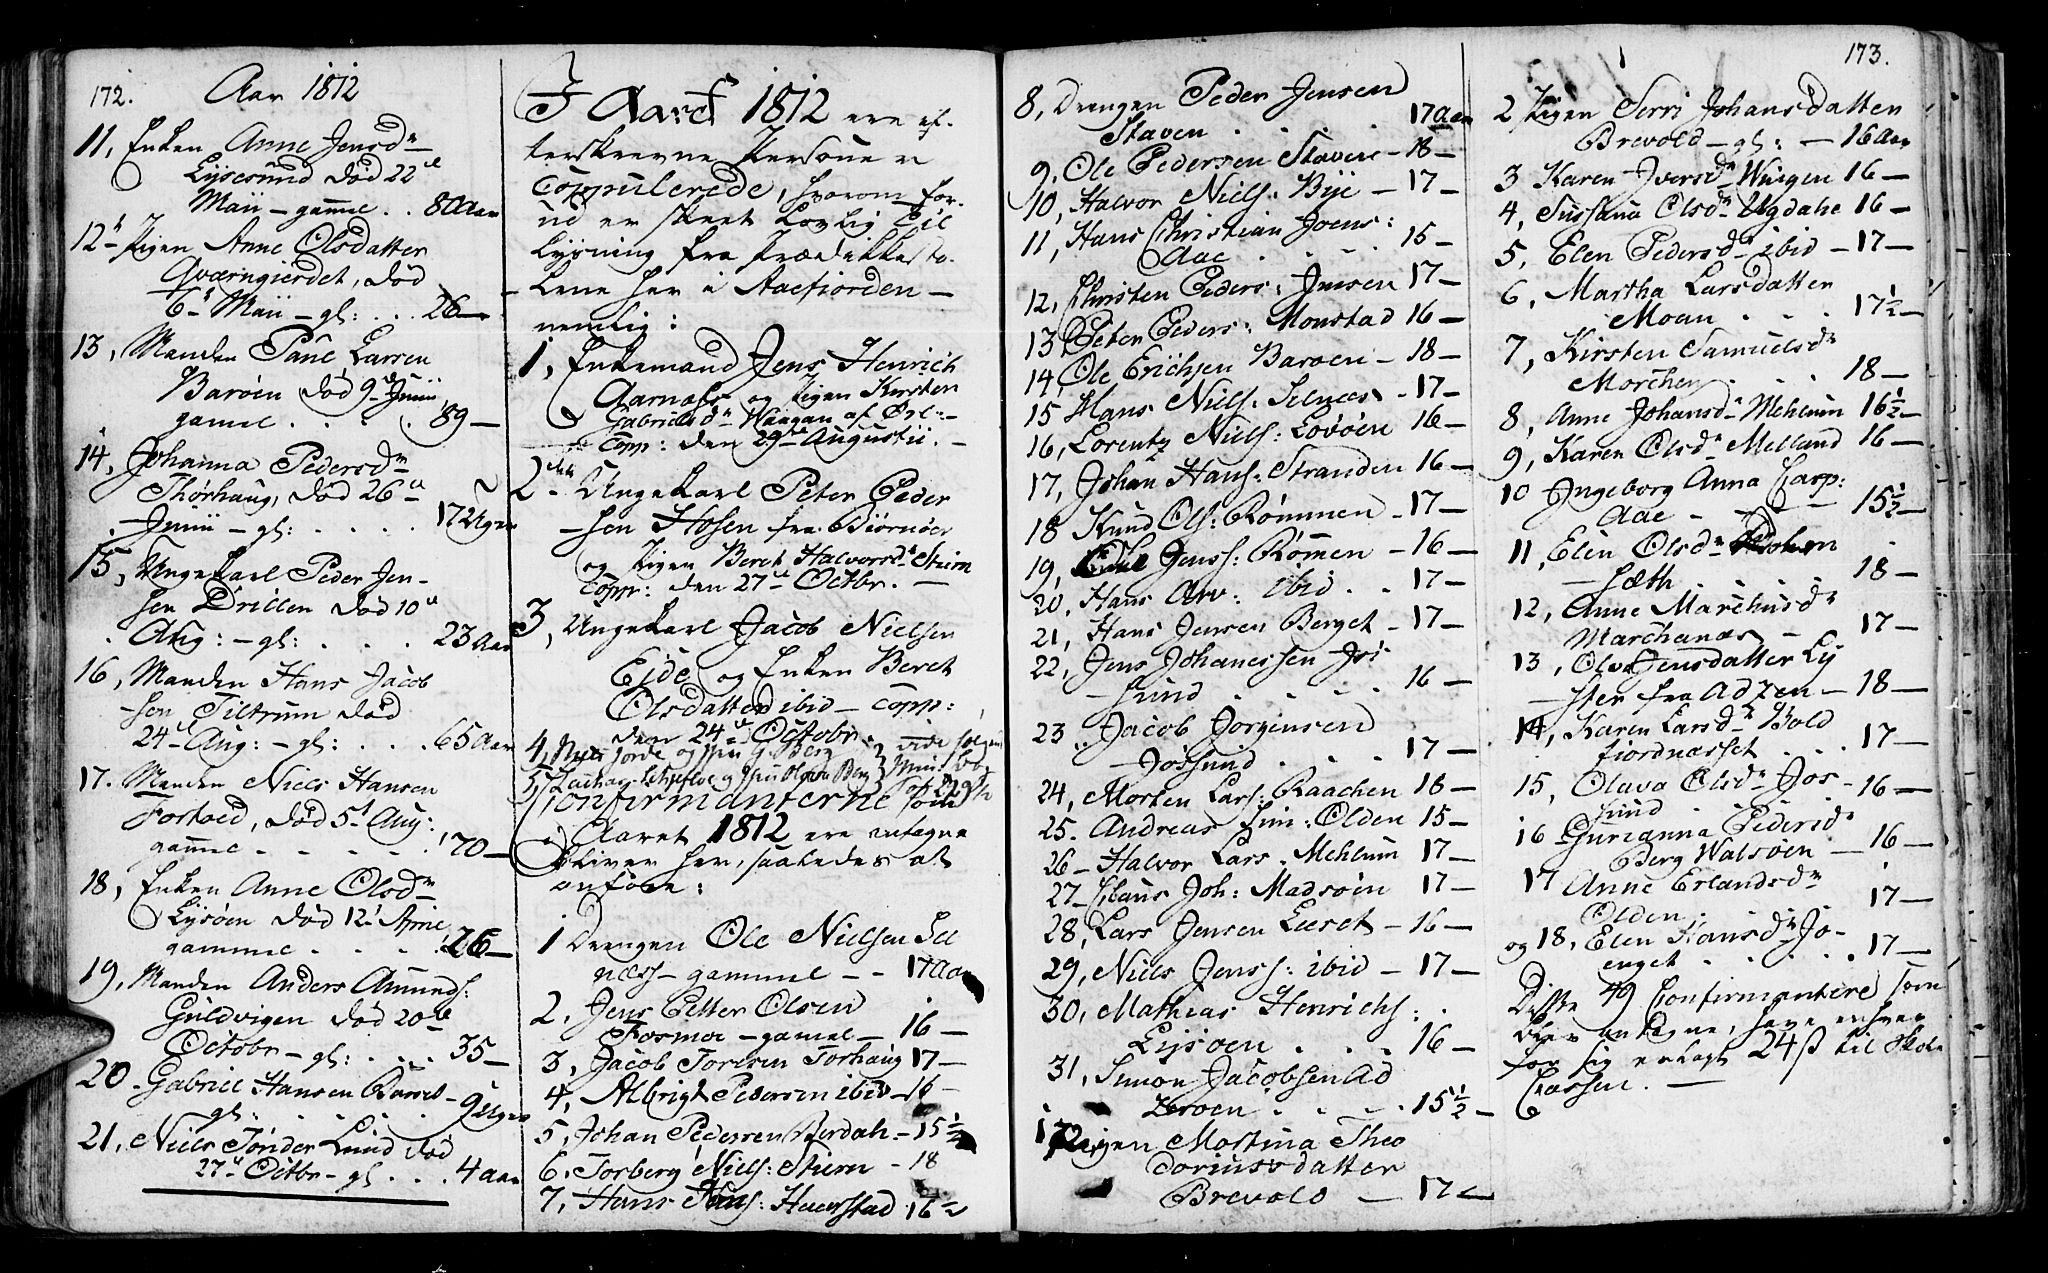 172.
Aar 1812
11, Enken Anne Jensd.
Lysesund død 22
Maii - gamel . . 80 Aar
12 Pigen Anne Olsdatter
Qværngierdet, død
6 Maii - gl: . . . 26 -
13, Manden Larsen
Barøen død 9 Junii
gamel . . . . . 89 -
14, Johanna Pedersd.
Thørhaug, død 26
Junii - gl: . . . . 17 Uger
15, Ungekarl Peder Jen-
sen Drillen død 10
Aug: - gl: . . . . 23 Aar
16, Manden Hans Jacob
sen Tiltrum død
24 Aug: - gl: . . . 65 Aar
17. Manden Niels Hansen
død 5 Aug:
gammel - - - - - 70 -
18, Enken Anne Olsd.
Lysøen død 12 April
gammel . . . . 26 -
19, Manden Anders Amunds:
Guldvigen død 20
Octobr - gl: . . . . 35 -
20 - Gabriel Hansen
gl: . . . . . . . 9 Uger
21, Niels Tønder Lund død
27 Octbr - gl . . . 4 Aar
I Aaret 1812 ere ef-
terskrevne Personer
Coppulerede, hvorom for-
ud er skeet Lovlig Til
lysning fra Prædikesto-
lene her i Aaefiorden -
nemlig:
1, Enkemand Jens Henrich
Aarnæs og Pigen Kirsten
Gabrielsd. Waagan af
Copp: den 29 Augustii. -
2 Ungekarl Peter Peder
sen Hosen fra Biørnøer
og Pigen Beret Halvorsd. Stiern
Copp: den 27 Octbr. -
3, Ungekarl Jacob Nielsen
Eide og Enken Beret
Olsdatter ibid - Copp:
den 24 Octobr.
4, og G. Berg vide
5, Berg
Confirmanterne som
i Aaret 1812 ere antagne
bliver her, saaledes at
anføre:
1 Drengen Ole Nielsen Sel
næss - gammel - - 17 Aar
2, Jens Petter Olsen
Fosmoe - gamel - 16 -
3, Jacob Torhaug 17 -
4, Albrigt Pedersen ibid - 16 -
5, Johan Pedersen - 15 1/2
6, Torberg Niels: Stiern - 18
7, Hans : Haarstad 16 1/2
8, Drengen Peder Jensen
Staven . . . . . 17 Aar
9, Ole Pedersen Staven - 18 -
10, Halvor Niels: Bye - 17 -
11, Hans Christian Joens:
Aae . . . . 15 -
12, Christen Peders: Jensen 17 -
13, Peter Peders: Monstad 16 -
14, Ole Erichsen Barøen - 18 -
15 Hans Niels: Selnæs - 17 -
16, Lorentz Niels: Lovøen 16 -
17, Johan Hans: Stranden 16 -
18 Knud Ols: Rømmen - 17 -
19, Jenss: Rømen - 16 -
20, Hans Arv: ibid . . 17 -
21, Hans Jensen Berget - 17 -
22, Jens Johanessen Jøs-
sund . . . . 16 -
23 Jacob Jørgensen
Jøssund . . . . 17 -
24, Morten Lars: Raachen 18 -
25. Andreas Sim: Olden 15 -
26 - Halvor Lars: Mehlum 17 -
27 - Claus Joh: Madsøen 17 -
28, Lars Jensen Leeret - 16 -
29, Niels Jenss: ibid - 17 -
30, Mathias Henrichs:
Lysøen . . . . 16 -
31, Simon Jacobsen Ad
zeroen . . . . 15 1/2 -
1 Pigen Martina Theo
doriusdatter
Brevold - 17 -
173.
2 Pigen Serri Johansdatter
Brevold - gl: - 16 Aar
3 Karen Iversd. Wiigen 16 -
4, Sussana Olsd. Ugdahl 16 -
5, Elen Pedersd. ibid - 17 -
6, Martha Larsdatter
Moan . . . 17 1/2 -
7, Kirsten Samuelsd.
Morchen . . . . 18 -
8, Anne Johansd. Mehlum 16 1/2 -
9, Karen Olsd. Melland 16 -
10 Ingeborg Anna Casp:
Aae - - - 15 1/2 -
11, Elen Olsd.
sæth . . . . 18 -
12, Anne Marchusd.
Marchanæs - 17 -
13, Olva Jensdatter Ly
sten fra Adzen - 18 -
14, Karen Larsd. Bold
fiordnæsset . . . 17 -
15, Olava Olsd. Jøs-
sund . . 16 -
16 Gurianna Pedersd.
Berg Walsøen - 16 -
17 Anne Erlandsd.
Olden . . . . 17 -
og 18, Elen Hansd. Jo-
enget . . . . . 17 -
Disse 49 Confirmantere som
blev antagne, have enhver
for sig erlagt 24 ß til Skole
Cassen. -